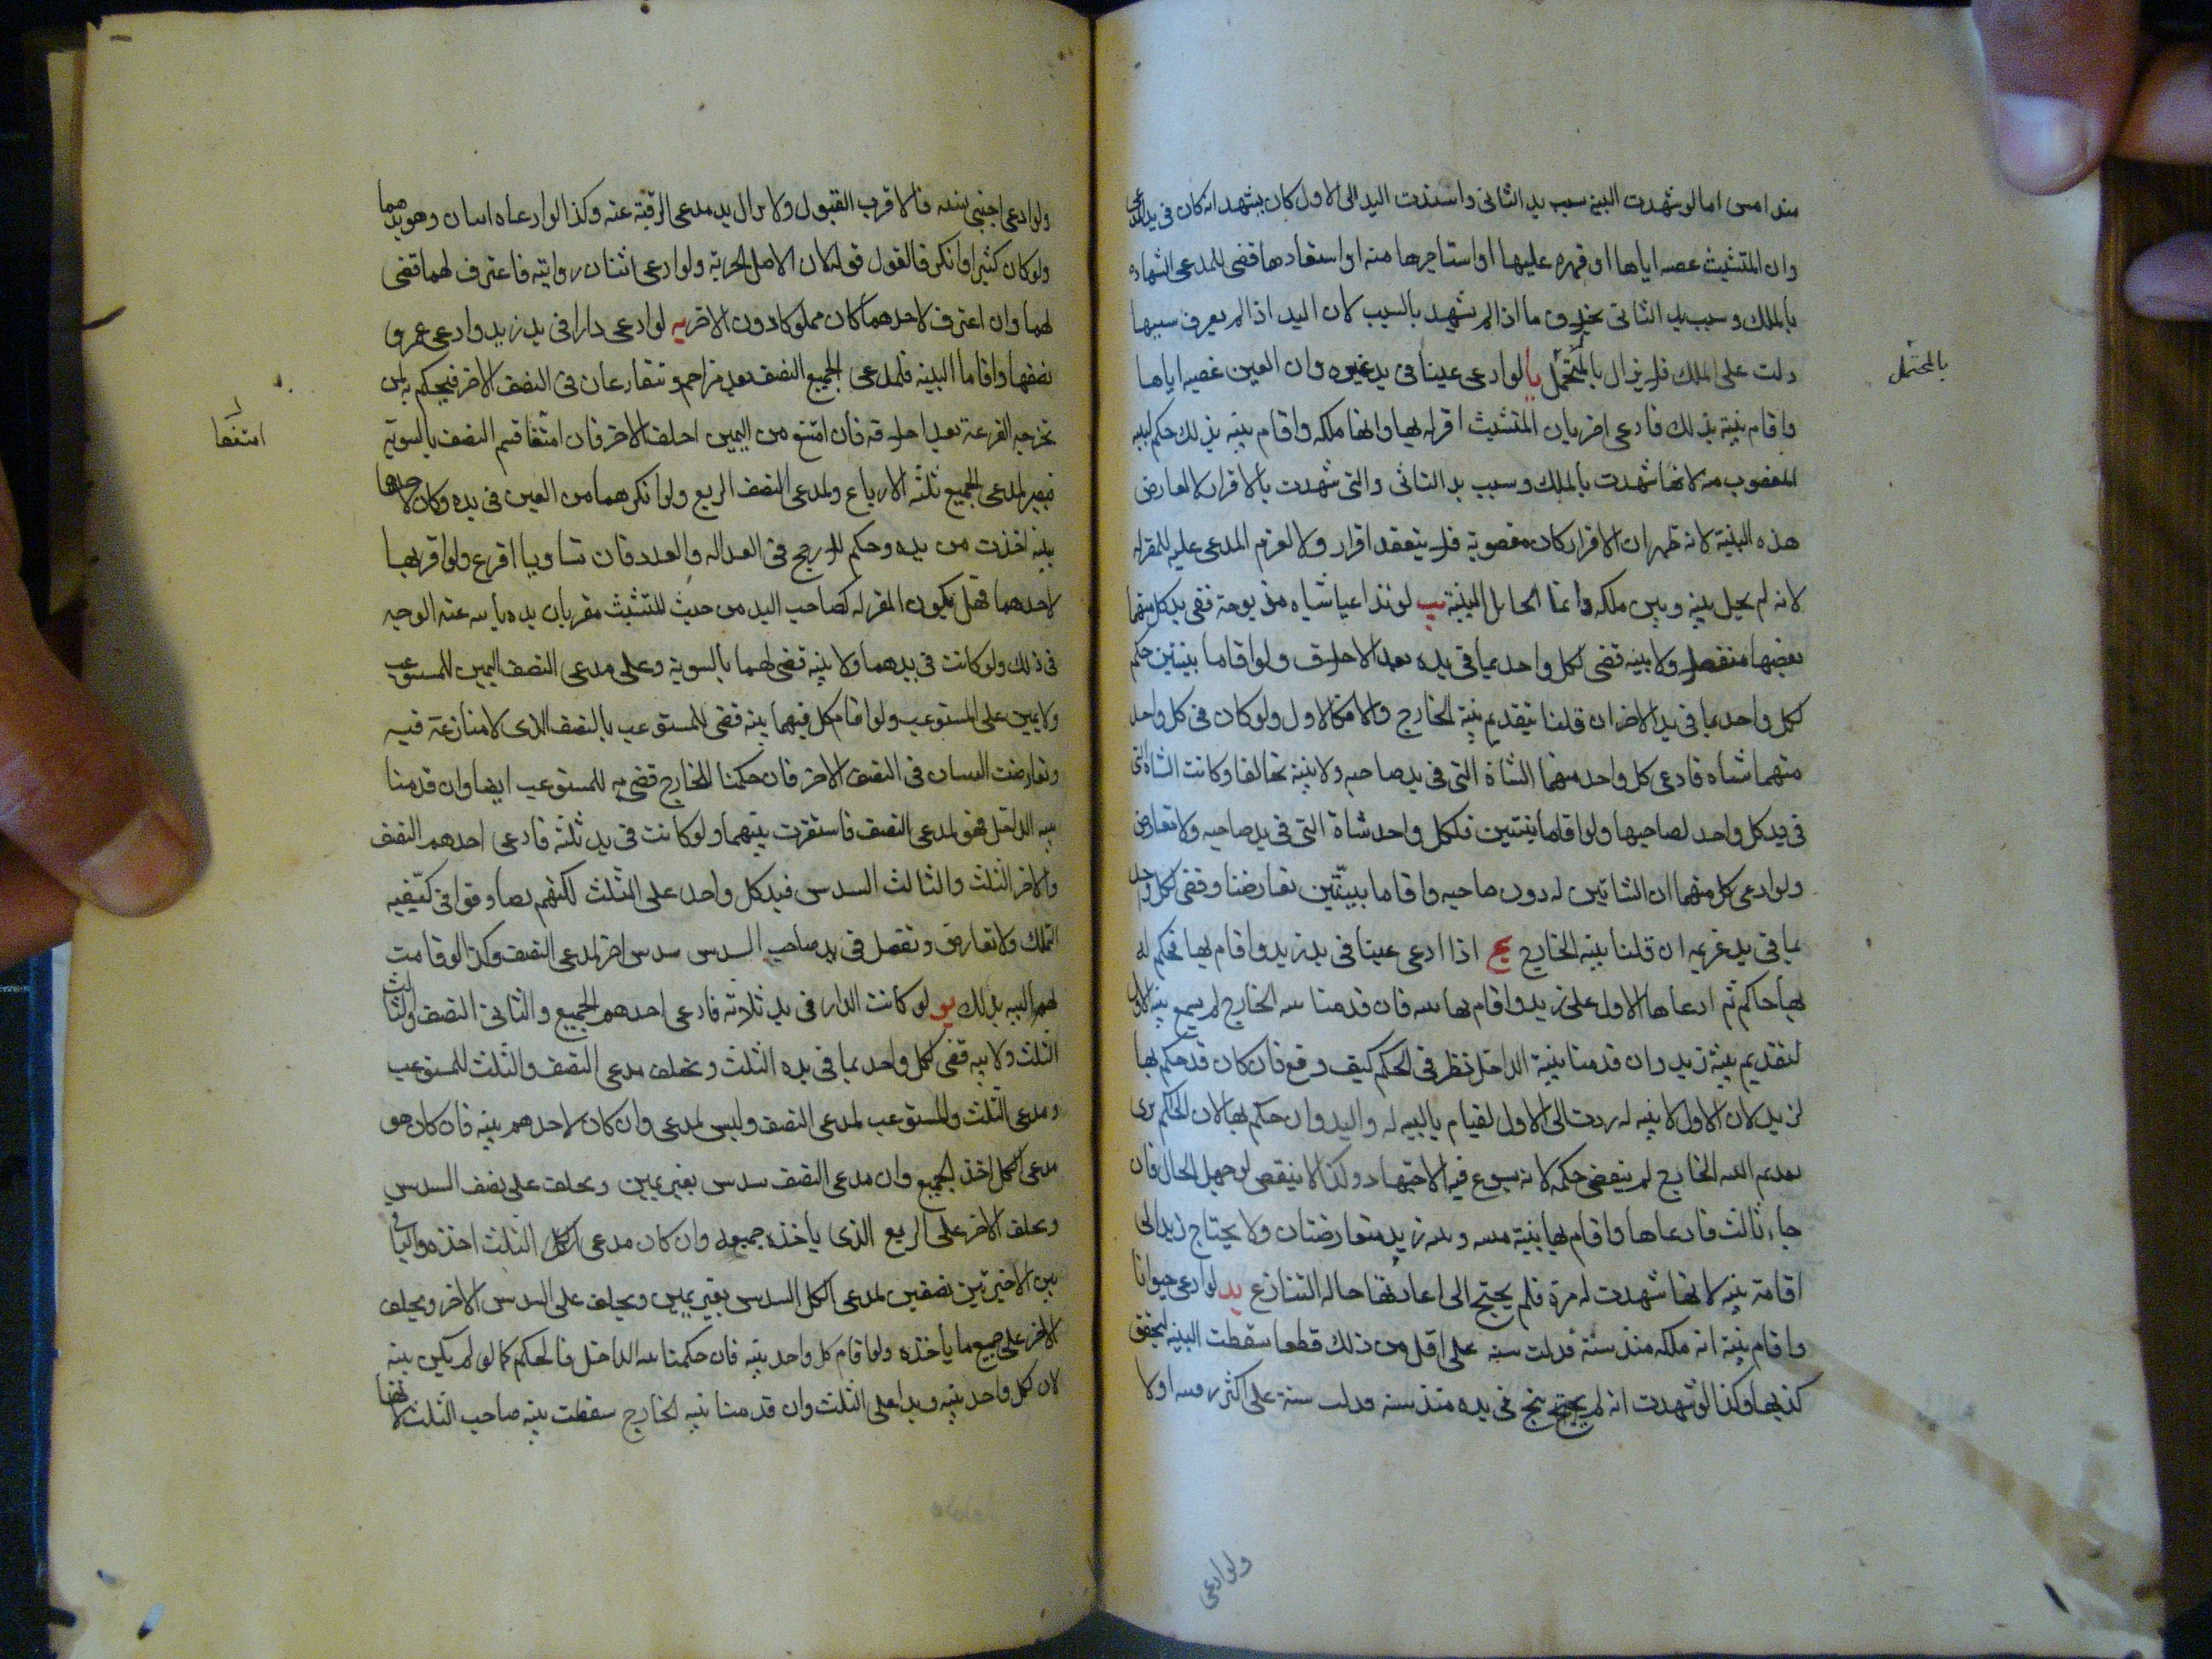 منذ امس اما لو شهدت البينة بسبب يد الثاني واستندت اليد الى الاول كان يشهد انه كان في يد المدعى
وان المتشبث غصبه اياها او قهره عليها او استاجرها منه او استعادها قضى للمدعى لشهاده
بالملك وسبب يد الثاني بخلاف ما اذا لم تشهد بالسبب لان اليد اذا لم يعرف سببها
دلت على الملك فلا يزال بالمحتمل يا لو ادعى عينا في يد غيره وان العين غصبه اياها
بالمحتمل
واقام بينة بذلك فادعى اخر بان المتشبث اقر له بها وانها ملكه واقام بينة بذلك حكم لبينة
المغصوب منه لانها شهدت بالملك وسبب يد الثاني والتي شهدت بالاقرار لا تعارض
هذه البينة لانه ظهر ان الاقرار كان مغصوبة فلا ينعقد اقرار ولا لغرم المدعى عليه للمقر له
لانه لم يحل بينه وبين ملكه وانما الحايل البينة يب لو تداعيا شاه مذبوحة ففي يد كل منهما
بعضها منفصلا ولا بينه قضى لكل واحد بما في يده بعد الاحلاف ولو اقاما بينتين حكم
لكل واحد بما في يد الاخر ان قلنا بتقديم بينة الخارج والا فكالاول ولو كان في كل واحد
منهما شاه فادعى كل واحد منهما الشاة التي في يد صاحبه ولا بينة تحالفا وكانت الشاة التي
في يد كل واحد لصاحبها ولو اقاما بينتين فلكل واحد شاة التي في يد صاحبه ولا تعارض
ولو ادعى كل منهما ان الشاتين له دون صاحبه واقاما ببينتين تعارضتا وقضى لكل واحد
بما في يد غريمه ان قلنا ببينه الخارج يج اذا ادعى عينا في يد زيد واقام بها فحكم له
بها حاكم ثم ادعاها الاول على زيد واقام بها بينه فان قدمنا بينه الخارج لم يسمع بينه الاول
لتقديم بينة زيد وان قدمنا بينة الداخل نظر في الحكم كيف وقع فان كان قد حكم بها
لزيد لان الاول لا بينه له ردت الى الاول لقيام بالبينه له واليد وان حكم بها لان الحاكم يرى
تقديم بينة الخارج لم ينقض حكمه لانه يسوغ فيه الاجتهاد وكذا لا ينقض لو جهل الحال فان
جاء ثالث فادعاها واقام بها بينة بينه وبينه زيد متعارضتان ولا يحتاج زيد الى
اقامة بينه لانها شهدت له مرة فلم يحتج الى اعادتها حاله التنازع يد لو ادعى حيوانا
واقام بينة انه ملكه منذ سنة فدلت سنه على اقل من ذلك قطعا سقطت البينه لتحقق
كذبها وكذا لو شهدت انه لم ينتج في يده منذ سنه فدلت سنة على اكثر منه او لا
ولو ادعى
ولو ادعى اجنبي بنده فالاقرب القبول ولا يزال يد مدعى الرقية عنه وكذا لو ادعاه اثنان وهو بيدهما
ولو كان كثيرا وانكر فالقول قوله لان الاصل الحرية ولو ادعى اثنان رقيته فاعترف لهما قضى
لهما وان اعترف لاحدهما كان مملوكا دون الاخر يه لو ادعى دارا في يد زيد وادعى عمرو
نصفها واقاما البينه فلمدعى الجميع النصف بغير مزاحم وتتقارعان في النصف الاخر فيحكم به لمن
تخرجه القرعة بعد احلافه فان امتنع من اليمين احلف الاخر فان امتنعا قسم النصف بالسوية
امتنعا
فيصير لمدعى الجميع ثلثه الارباع ولمدعى النصف الربع ولو انكرهما من العين في يده وكان لاحدهما
بينه اخذت من يده وحكم للارجح في العداله والعدد فان تساويا اقرع ولو اقر بها
لاحدهما فهل يكون المقر له كصاحب اليد من حيث للمتشبث مقر بان يده نايبه عنه الوجه
في ذلك ولو كانت في يدهما ولا بينه قضى لهما بالسوية وعلى مدعى النصف اليمين للمستوعب
ولا يمين على المستوعب ولو اقام كل فيهما بينه قضى للمستوعب بالنصف الذى لا منازعة فيه
وتعارضت البينتان في النصف الاخر فان حكمنا للخارج قضى به للمستوعب ايضا وان قدمنا
بينه الداخل فهو لمدعى النصف فاستقرت بينهما ولو كانت في يد ثلثه فادعى احدهم النصف
والاخر الثلث والثالث السدس فيد كل واحد على الثلث لكنهم تصادقوا في كيفيه
التملك ولا تعارض وتفضل في يد صاحب السدس سدس اخر لمدعى النصف وكذا لو قامت
لهم البينه بذلك يو لو كانت الدار في يد ثلاثه فادعى احدهم الجميع والثاني النصف والثالث
الثلث ولا بينه قضى لكل واحد بما في يده الثلث ويحلف مدعى النصف والثلث للمستوعب
ومدعى الثلث والمستوعب لمدعى النصف وليس لمدعى وان كان لاحدهم بينه فان كان هو
مدعى الكل اخذ الجميع وان مدعى النصف سدس بغير يمين ويحلف على نصف السدس
ويحلف الاخر على الربع الذى ياخذه جميعه وان كان مدعى الكل الثلث اخذه والباقى
بين الاخيرتين نصفين لمدعى الكل السدس بغير يمين ويحلف على السدس الاخر ويحلف
الاخر على جميع ما يأخذه ولو اقام كل واحد بينه فان حكمنا بينه الداخل فالحكم كما لو لم يكن بينه
لان كل واحد بينه ويدا على الثلث وان قدمنا بينه الخارج سقطت بينه صاحب الثلث لانها